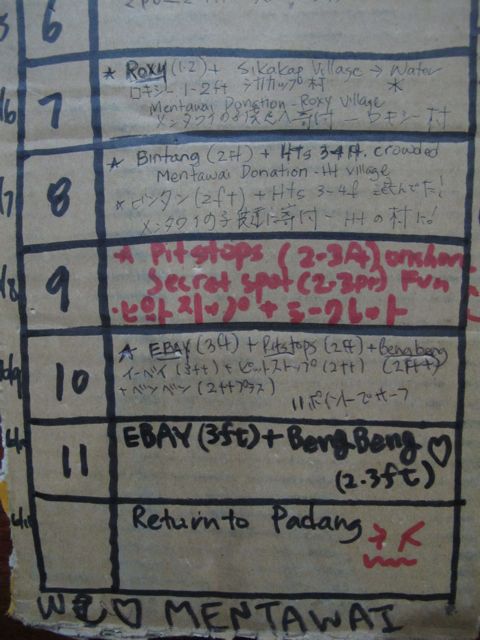 6
7
★ Roxy (1-2) + Sikakap Village → Water
ロキシー 1-2ft シカカップ村 水
Mentawai Donation - Roxy Village
メンタワイの子供達へ寄付 - ロキシー村
8
★ Bintang (2ft) + Hts 3-4ft. crowded
Mentawai Donation - Ht village
★ビンタン (2ft) + Hts 3-4f 混んでた!
メンタワイの子供達に寄付 - Htの村に!
9
★ Pitstops (2-3ft) onshore
Secret spot (2-3ft) Fun
10
★ EBAY (3ft) + Pitstops (2ft) + Bengbeng
イーベイ (3ft) + ピットストップ (2ft) (2ft+)
+ ベンベン (2ftプラス)
11ポイントでサーフ
11
EBAY (3ft) + BengBeng ♡
(2-3ft)
Return to Padang →
WE ♡ MENTAWAI